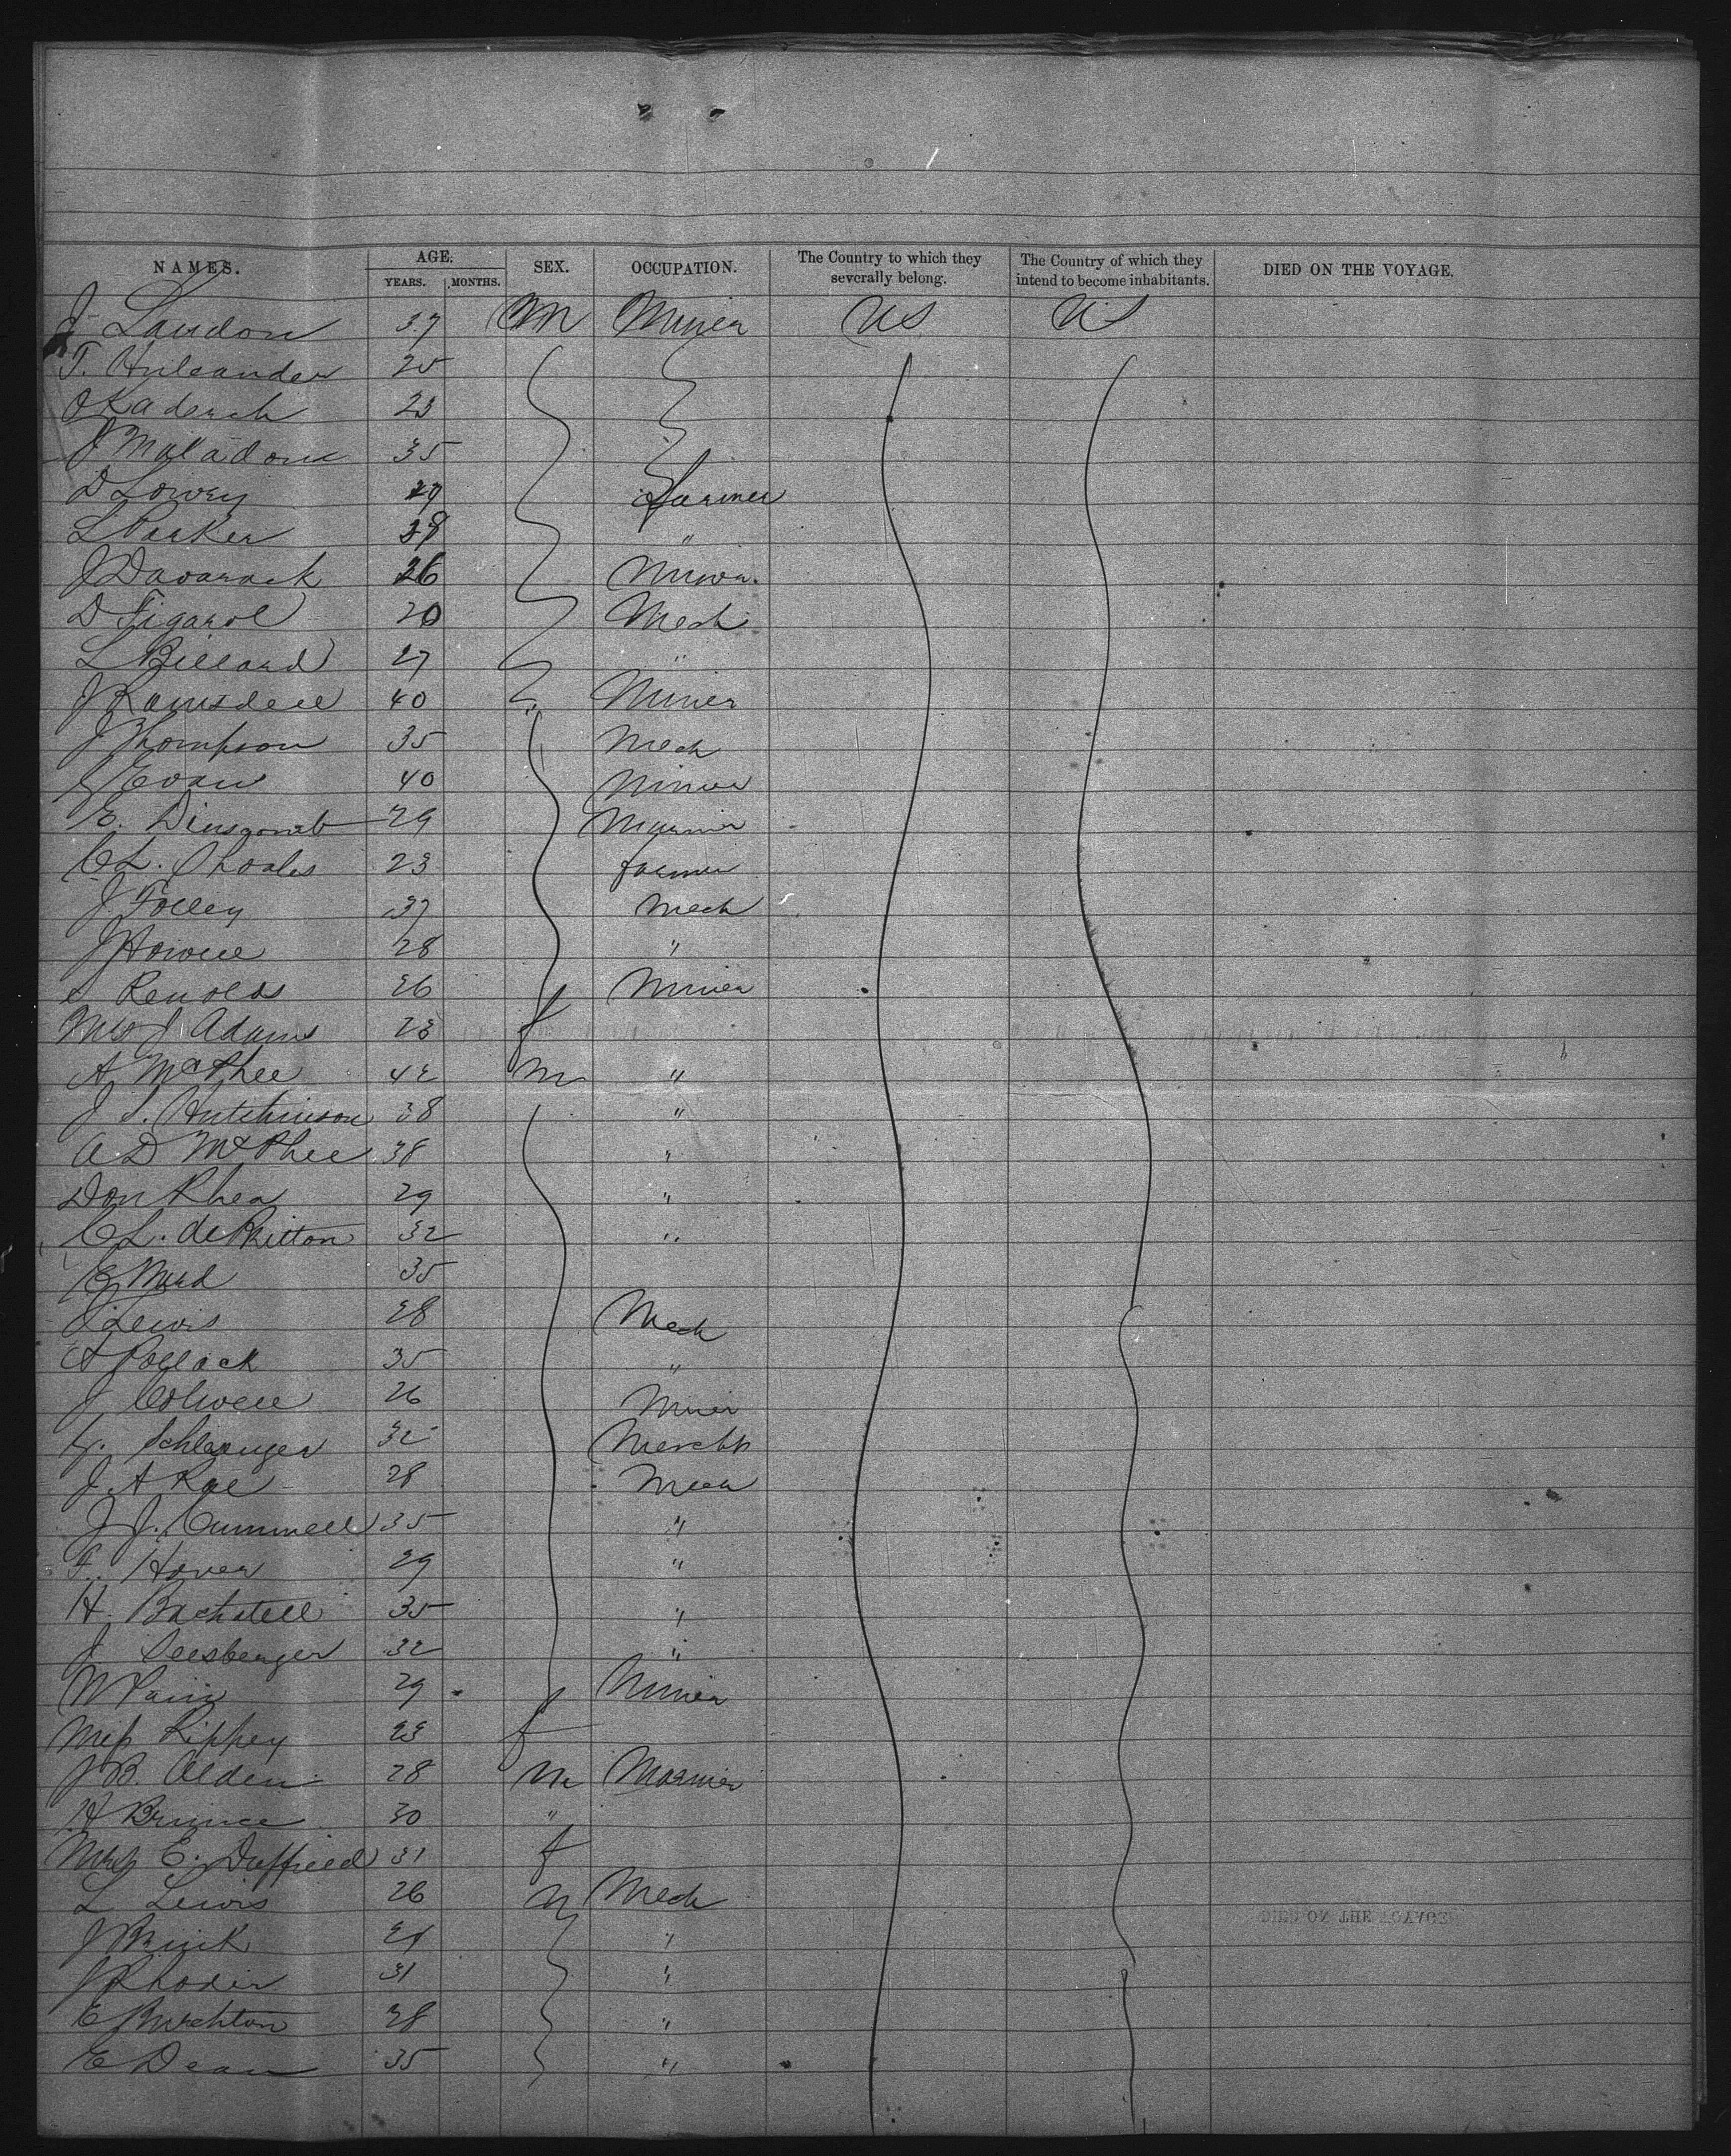 NAMES. AGE. SEX. OCCUPATION. The Country to which they severally belong. The Country of which they intend to become inhabitants. DIED ON THE VOYAGE.
YEARS. MONTHS.
J Landon 37 M Miner US US
T. 25
O Kaderch 23
J 35
D Lowry 29 Farmer
L Parker 28 "
J 26 Miner.
D Figarol 20 Mech
L Billard 27 "
J Ramsdell 40 Miner
J Thompson 35 Mech
J Evans 40 Miner
E. 29
C L. Rhoales 23 farmer
J. Tolley 37 Mech
J Howell 28 "
Renolds 26 Miner
Mrs J Adams 28 f
A McPhee 42 m "
J S. Hutchinson 38 "
A D McPhee 38 "
Don Rhea 29 "
C L. de 32 "
E 35
J Lewis 28 Mech
A Pollack 35 "
J Colwell 26 Miner
32
J. A Rae 28 Mech
J J. Cummell 35 "
F. Hover 29 "
H. Bachstell 35 "
J Seesberger 32 "
W 29 Miner
Miss Rippey 23 f
J B. Alden 28 m
H 30 "
E. Duffield 31 f
L Lewis 26 m Mech
J "
J 31 "
E 28 "
E Dean 35 "